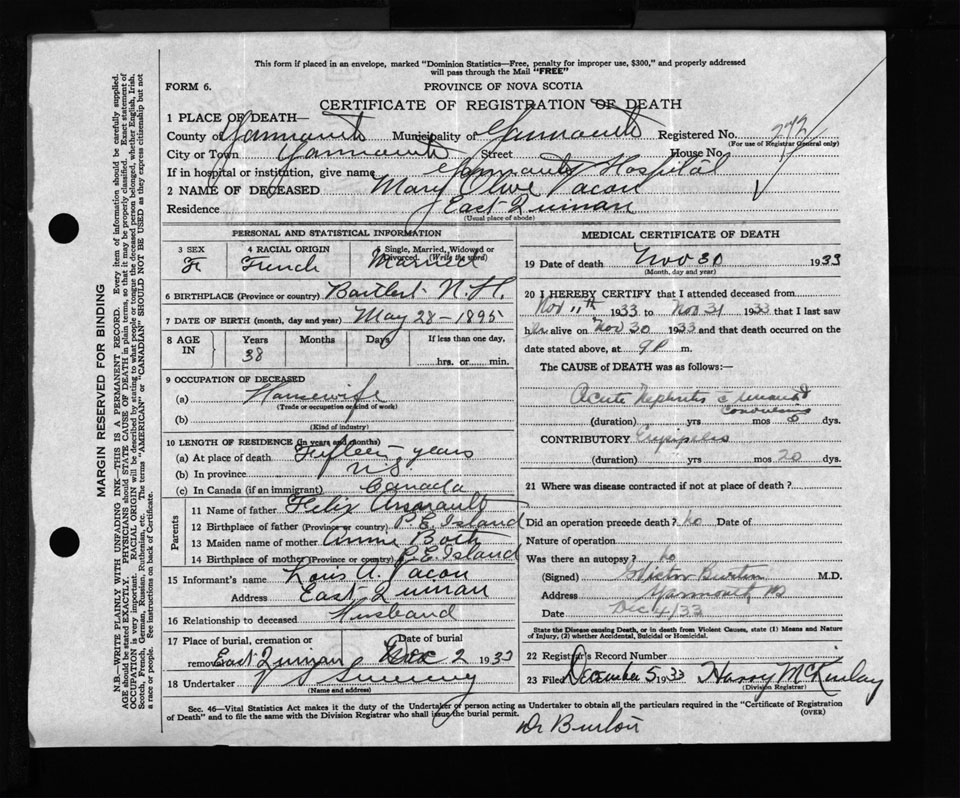 This form if placed in an envelope, marked "Dominion Statistics—Free, penalty for improper use, $300," and properly addressed
will pass through the Mail "FREE"
FORM 6.
PROVINCE OF NOVA SCOTIA
CERTIFICATE OF REGISTRATION OF DEATH
1 PLACE OF DEATH—
County of Yarmouth Municipality of Yarmouth Registered No. 272
(For use of Registrar General only)
City or Town Yarmouth Street House No.
If in hospital or institution, give name Yarmouth Hospital
2 NAME OF DECEASED Mary Olive Vacon
Residence East Quinan
(Usual place of abode)
PERSONAL AND STATISTICAL INFORMATION
3 SEX 4 RACIAL ORIGIN 5 Single, Married, Widowed or Divorced. (Write the word)
F French Married
6 BIRTHPLACE (Province or country) Bartlett N.H.
7 DATE OF BIRTH (month, day and year) May 28-1895
8 AGE IN Years Months Days If less than one day,
38 hrs. or min.
9 OCCUPATION OF DECEASED
(a) Housewife
(Trade or occupation or kind of work)
(b)
(Kind of industry)
10 LENGTH OF RESIDENCE (in years and months)
(a) At place of death Fifteen years
(b) In province N.S.
(c) In Canada (if an immigrant) Canada
Parents
11 Name of father Felix
12 Birthplace of father (Province or country) P.E. Island
13 Maiden name of mother Annie
14 Birthplace of mother (Province or country) P.E. Island
15 Informant's name Louis A. Vacon
Address East Quinan
16 Relationship to deceased Husband
17 Place of burial, cremation or removal Date of burial
East Quinan Dec 2 1933
18 Undertaker V S Sweeney
(Name and address)
MEDICAL CERTIFICATE OF DEATH
19 Date of death Nov 30 1933
(Month, day and year)
20 I HEREBY CERTIFY that I attended deceased from
Nov 11th 1933 to Nov 31 1933 that I last saw
her alive on Nov 30 1933 and that death occurred on
date stated above, at 9 P m.
The CAUSE of DEATH was as follows:—
Acute Nephritis
(duration) yrs mos 8 dys.
CONTRIBUTORY Erysipelas
(duration) yrs mos 20 dys.
21 Where was disease contracted if not at place of death?
Did an operation precede death? No Date of
Nature of operation
Was there an autopsy? No
(Signed) Victor Burton M.D.
Address Yarmouth NS
Date Dec 4/33
State the Disease causing Death, or in death from Violent Causes, state (1) Means and Nature
of Injury, (2) whether Accidental, Suicidal or Homicidal.
22 Registrar's Record Number
23 Filed December 5 1933 Harry McKinlay
(Division Registrar)
Sec. 46—Vital Statistics Act makes it the duty of the Undertaker or person acting as Undertaker to obtain all the particulars required in the "Certificate of Registration
of Death" and to file the same with the Division Registrar who shall issue the burial permit.
(OVER)
Dr Burton
MARGIN RESERVED FOR BINDING
N.B.—WRITE PLAINLY WITH UNFADING INK—THIS IS A PERMANENT RECORD. Every item of information should be carefully supplied.
AGE should be stated EXACTLY. PHYSICIANS should STATE CAUSE OF DEATH in plain terms, so that it may be properly classified. Exact statement of
OCCUPATION is very important. RACIAL ORIGIN will be described by stating to what people or tongue the deceased person belonged, whether English, Irish,
Scotch, French, German, Russian, Ruthenian, etc. The terms "AMERICAN" or "CANADIAN" SHOULD NOT BE USED as they express citizenship but not
a race or people. See instructions on back of Certificate.